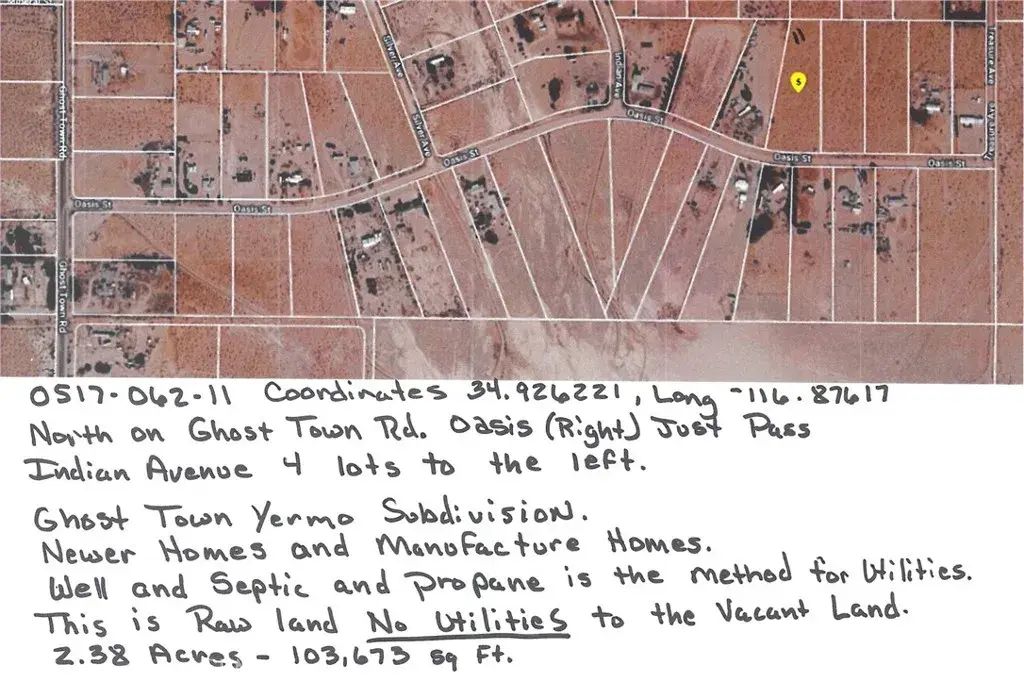 Mineral St
Ghost Town Rd
Ghost Town Rd
Silver Ave
Silver Ave
Indian Ave
Treasure Ave
Treasure Ave
Oasis St
Oasis St
Oasis St
Oasis St
Oasis St
Oasis St
$
0517-062-11 Coordinates 34.926221, Long -116.87617
North on Ghost Town Rd. Oasis (Right) Just Pass
Indian Avenue 4 lots to the left.
Ghost Town Yermo Subdivision.
Newer Homes and Manufacture Homes.
Well and Septic and propane is the method for Utilities.
This is Raw land No Utilities to the Vacant Land.
2.38 Acres - 103,673 sq Ft.